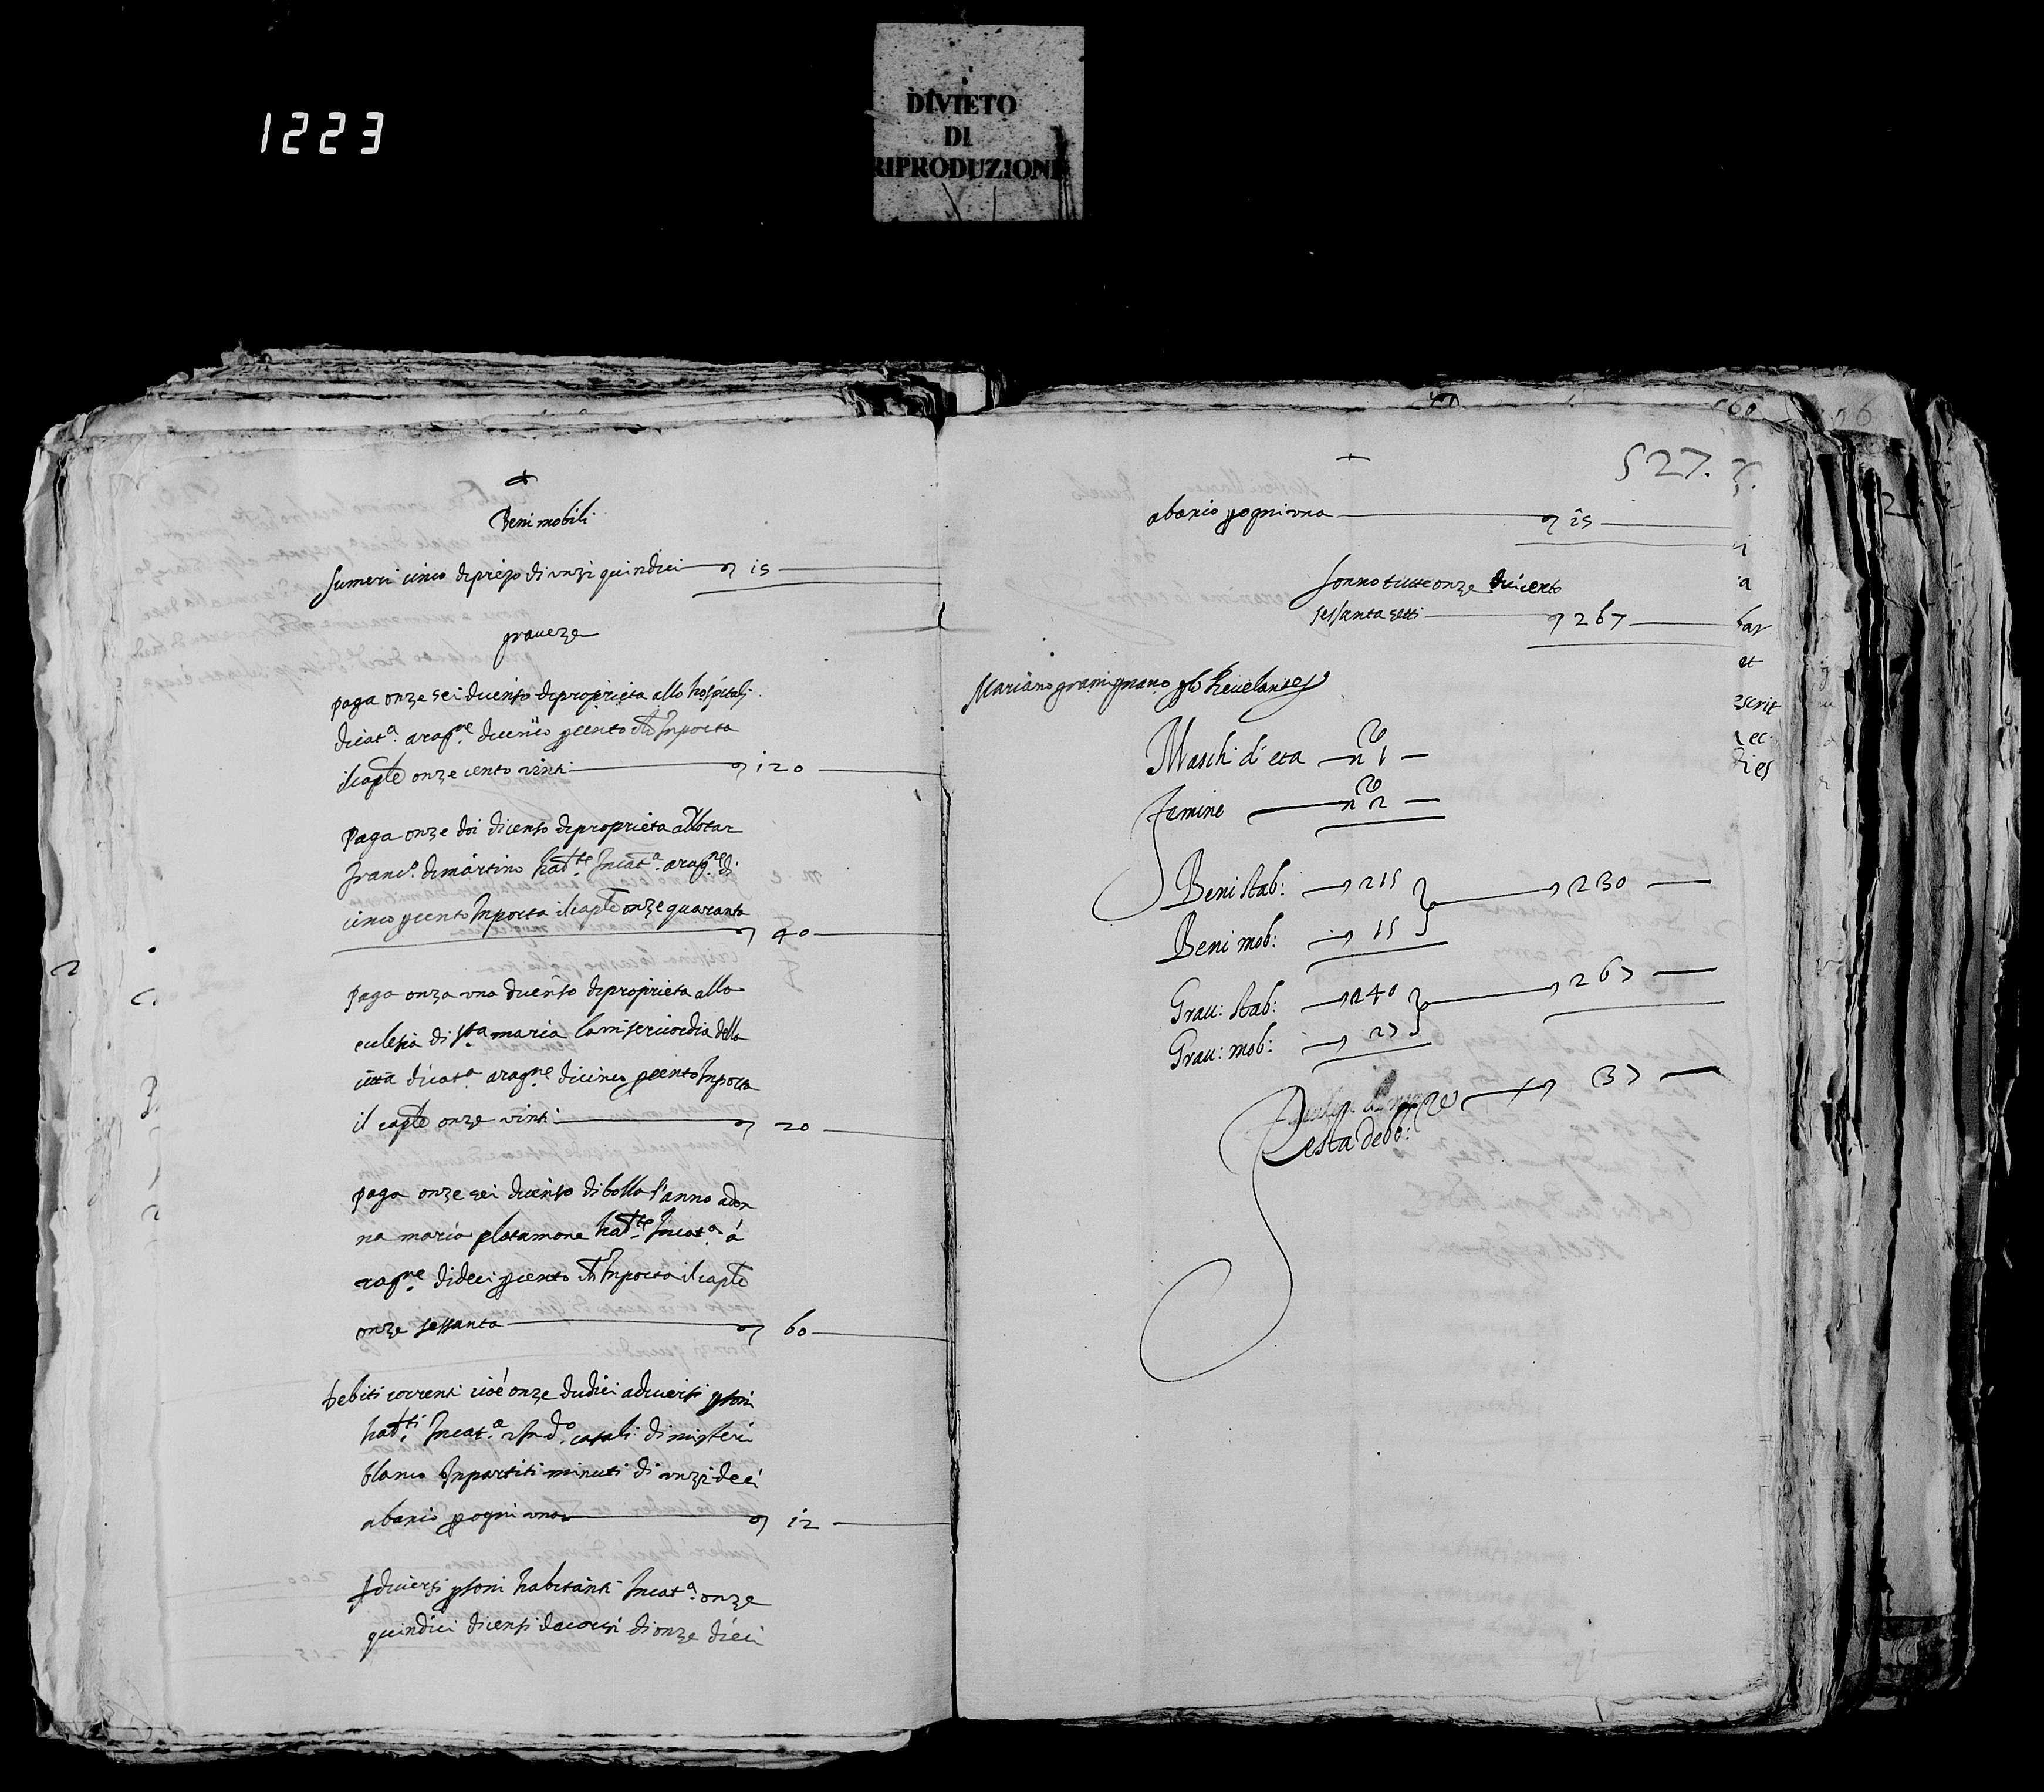 1223
DIVIETO
DI
RIPRODUZIONE
+
Beni mobili
sumeri cinco di prezo di unzi quindici 15
graueze
paga onze sei di censo di proprieta allo hospitali
di cat.a a rag.ne di cinco p cento chi Inporta
il cap.le onze cento vinti 120
Paga onze doi di censo di proprieta a
Franc.o di martino hab.te In cat.a a rag.ne di
cinco p cento Inporta il cap.le onze quaranta
40
Paga onza una di censo di proprieta alla
eclesia di s.ta maria la misericordia della
citta di cat.a a rag.ne di cinco p cento Inporta
il cap.le onze vinti 20
paga onze sei di censo di bolla l'anno a don
na maria platamone hab.te In cat.a a
rag.ne di deci p cento chi Inporta il cap.le
onze sessanta 60
Debiti correnti cioè onze dudici a diuersi p.soni
hab.ti In cat.a In d.o casali di misteri
blanco In partiti minuti di unzi deci
abaxio p ogni una 12
A diuersi p.soni habitanti In cat.a onze
quindici di censi decorsi di onze dieci
527.
+
abaxio p ogni una 15
sonno tutte onze ducicento
sessanta setti 267
Mariano gramignano Reuelante
Maschi di eta n.o 1
Femine n.o 2
Beni stab: 215 230
Beni mob: 15
Grau: stab: 240 267
Grau: mob: 27
37
Resta deb: